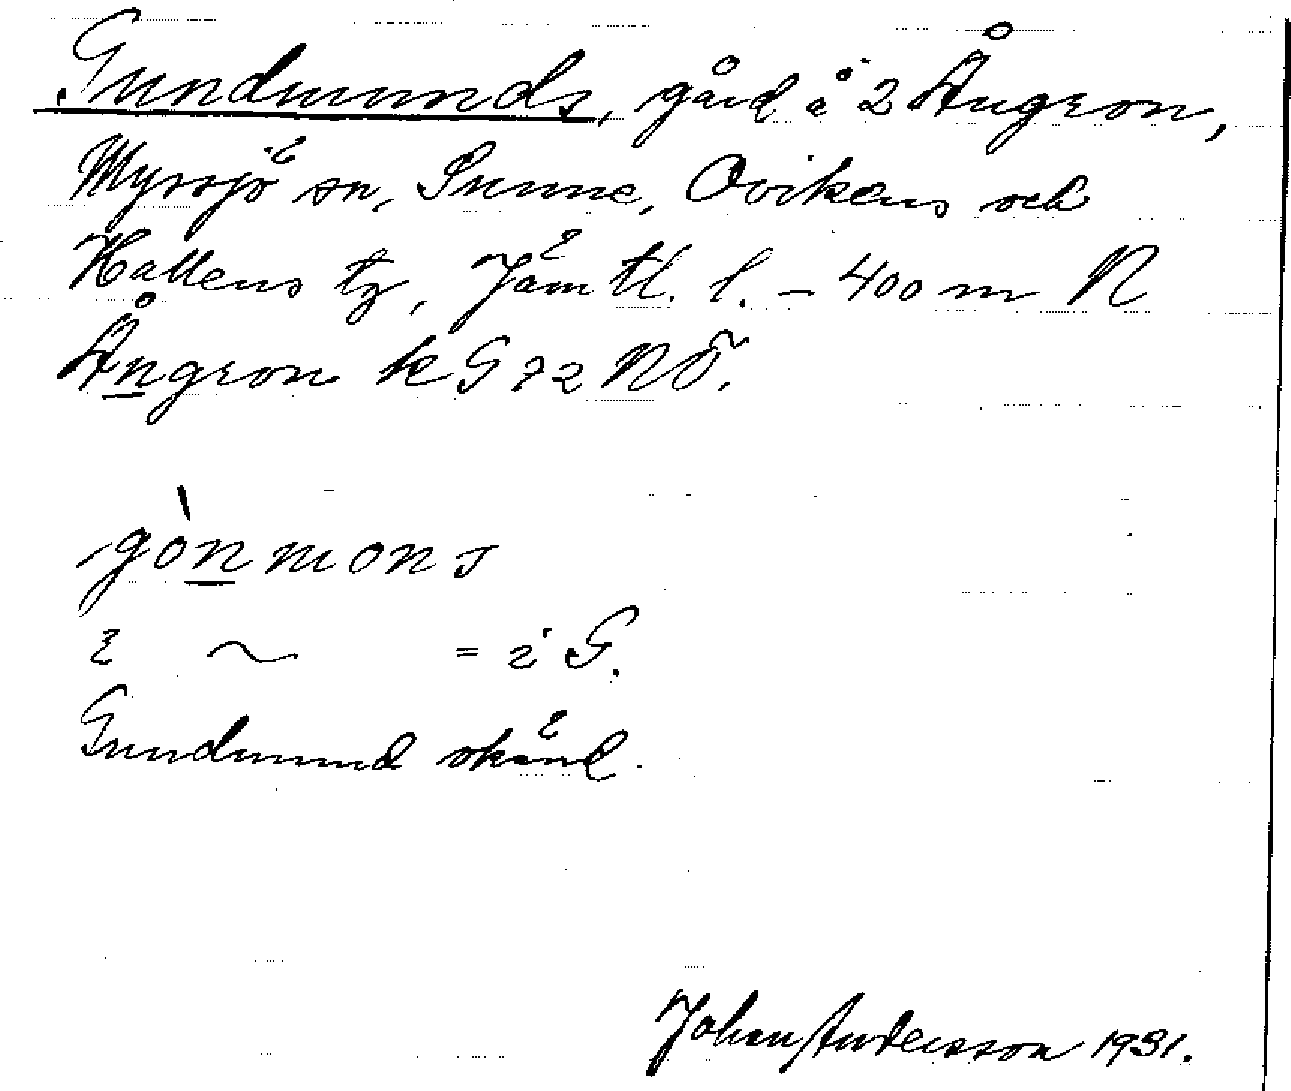 Gundmunds, gård å 2 Ångron,
Myssjö sn, Sunne, Ovikens och
Hallens tg, Jämtl. l. – 400 m N
Ångron k G 72 NÖ.
gònmons
i ~ = i G.
Gundmund skånl.
Johan Andersson 1931.